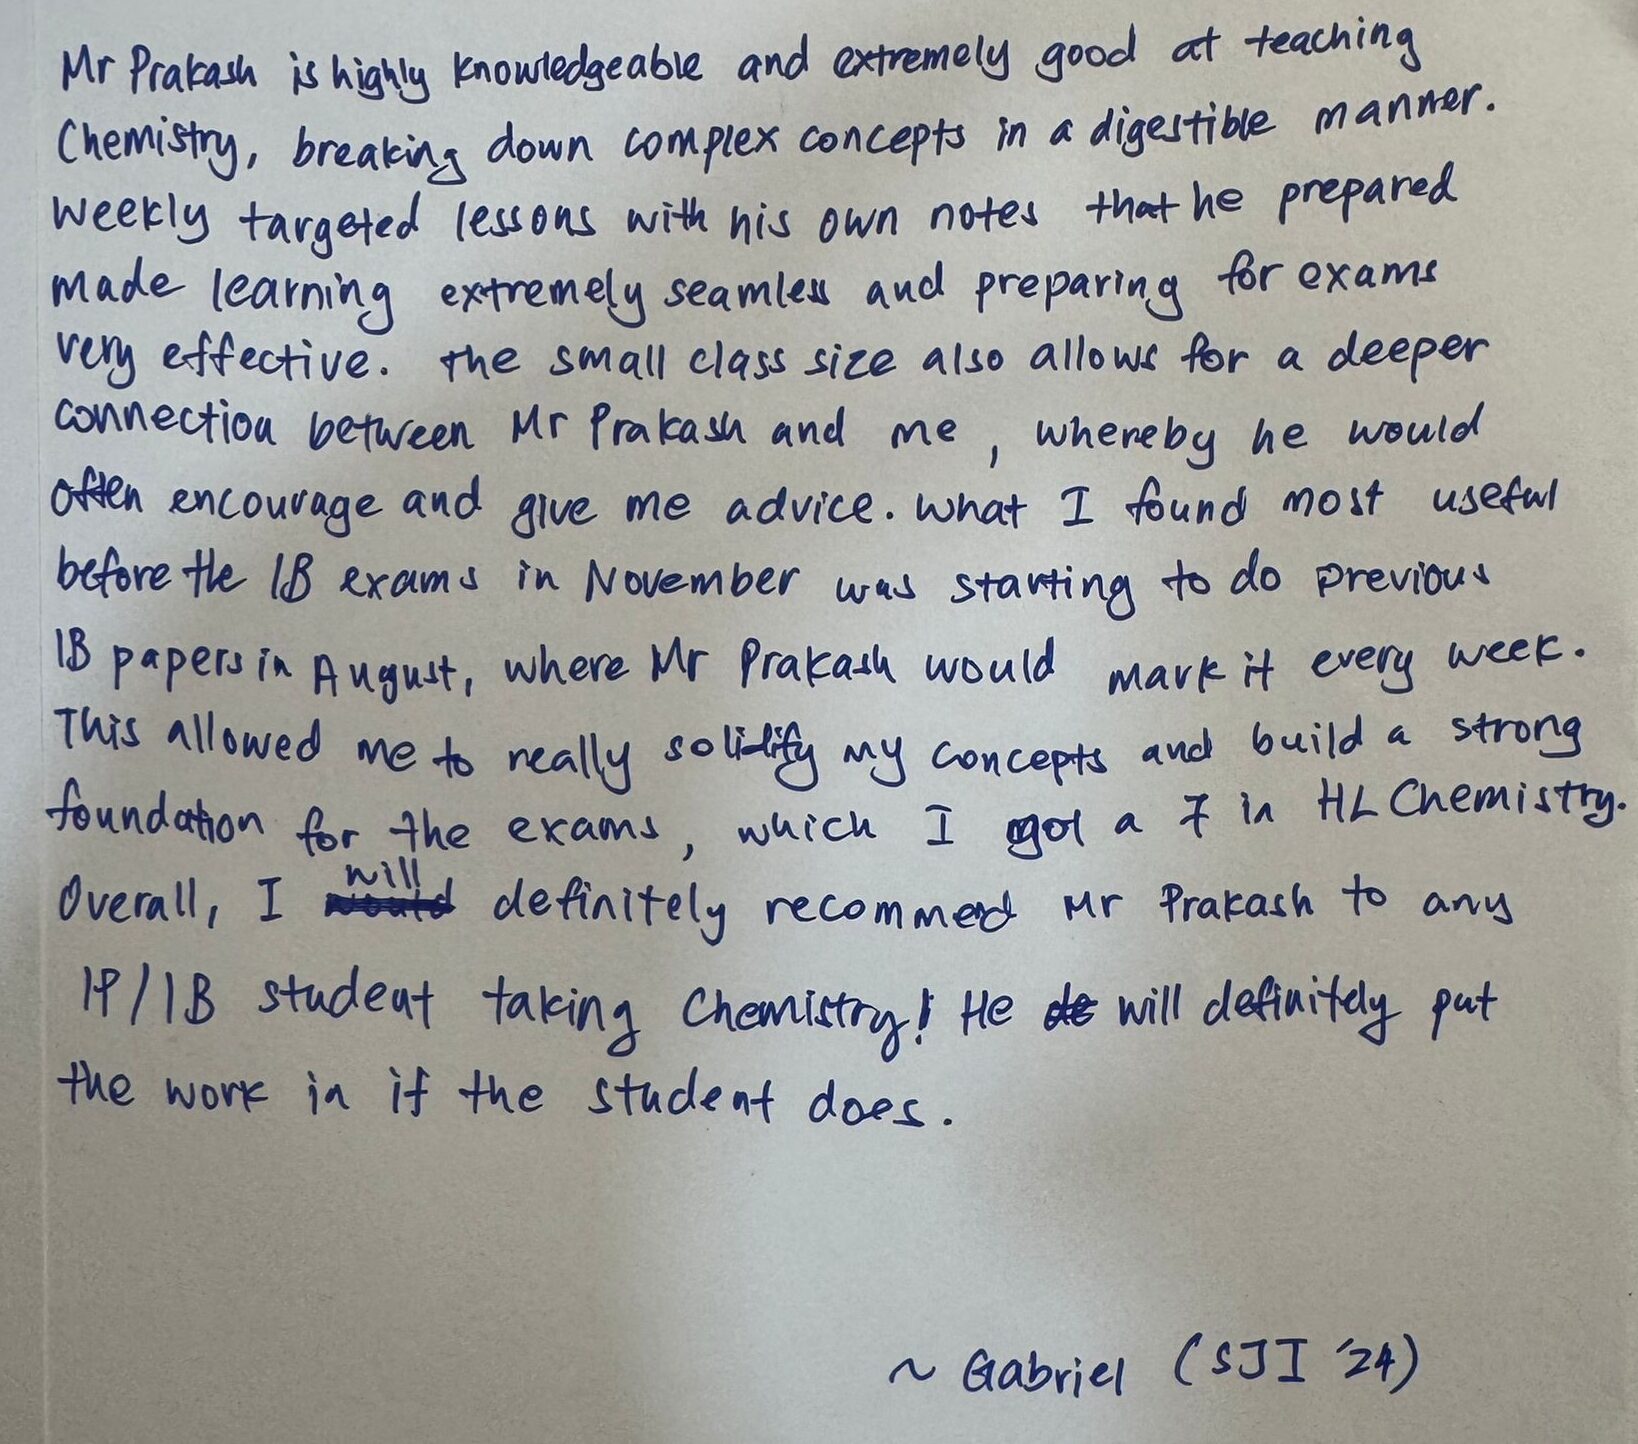 Mr Prakash is highly knowledgeable and extremely good at teaching
Chemistry, breaking down complex concepts in a digestible manner.
Weekly targeted lessons with his own notes that he prepared
made learning extremely seamless and preparing for exams
very effective. The small class size also allows for a deeper
connection between Mr Prakash and me, whereby he would
often encourage and give me advice. What I found most useful
before the IB exams in November was starting to do previous
IB papers in August, where Mr Prakash would mark it every week.
This allowed me to really solidify my concepts and build a strong
foundation for the exams, which I got a 7 in HL Chemistry.
Overall, I will definitely recommend Mr Prakash to any
IP/IB student taking Chemistry! He will definitely put
the work in if the student does.
~ Gabriel (SJI '24)